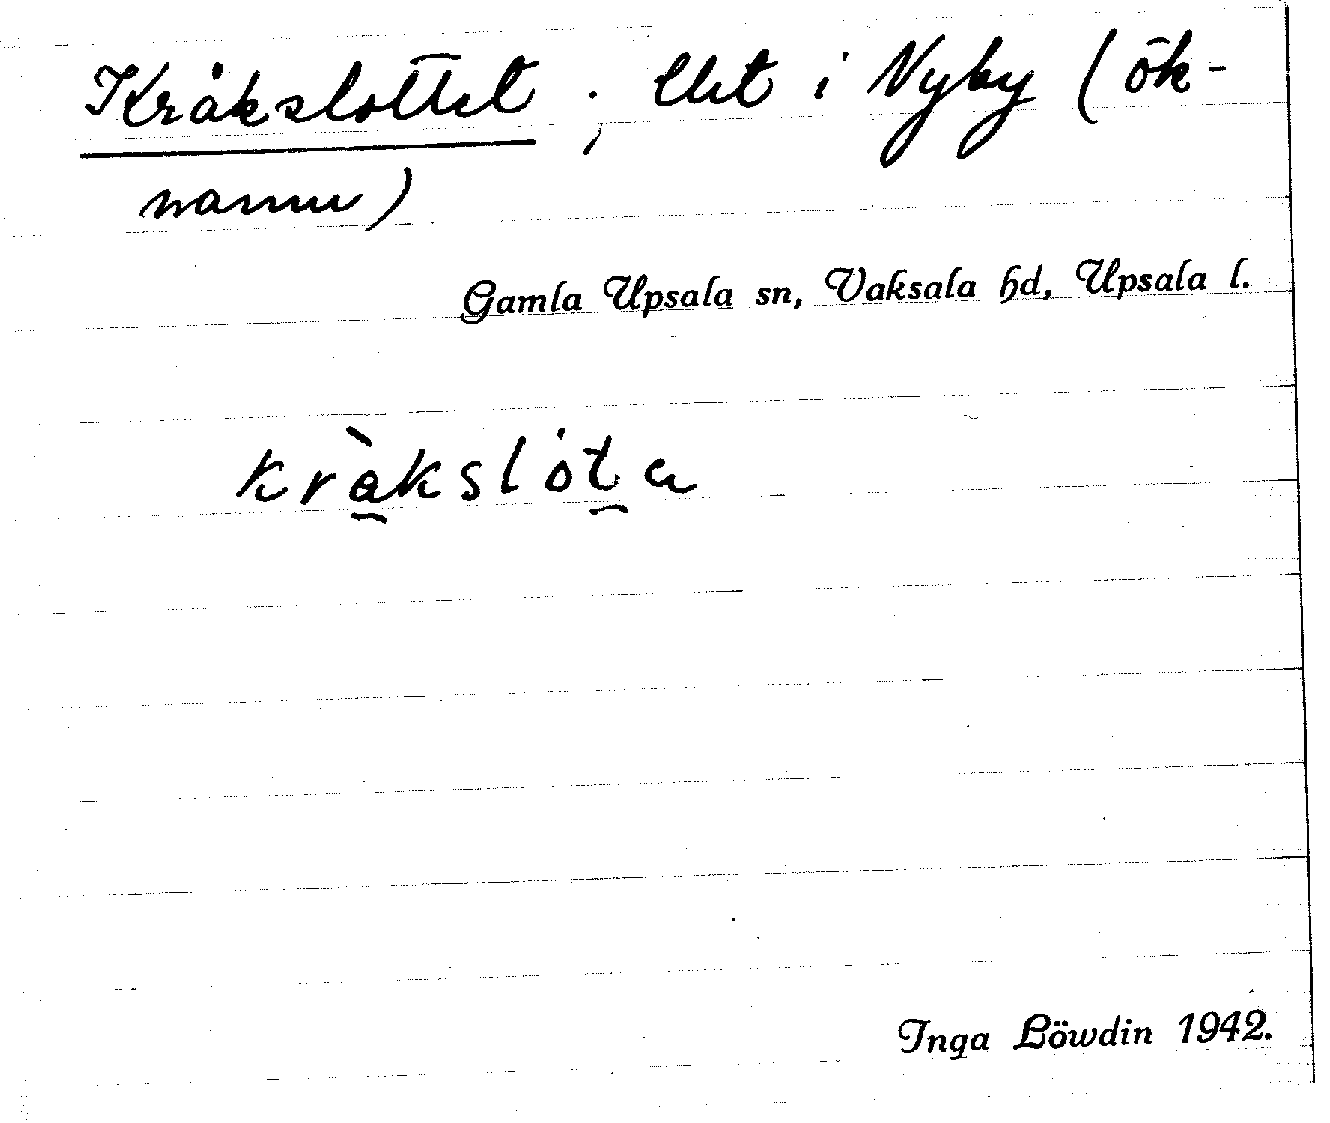 Kråkslottet; lht i Nyby (ök-
namn)
Gamla Upsala sn, Vaksala hd, Upsala l.
Inga Löwdin 1942.